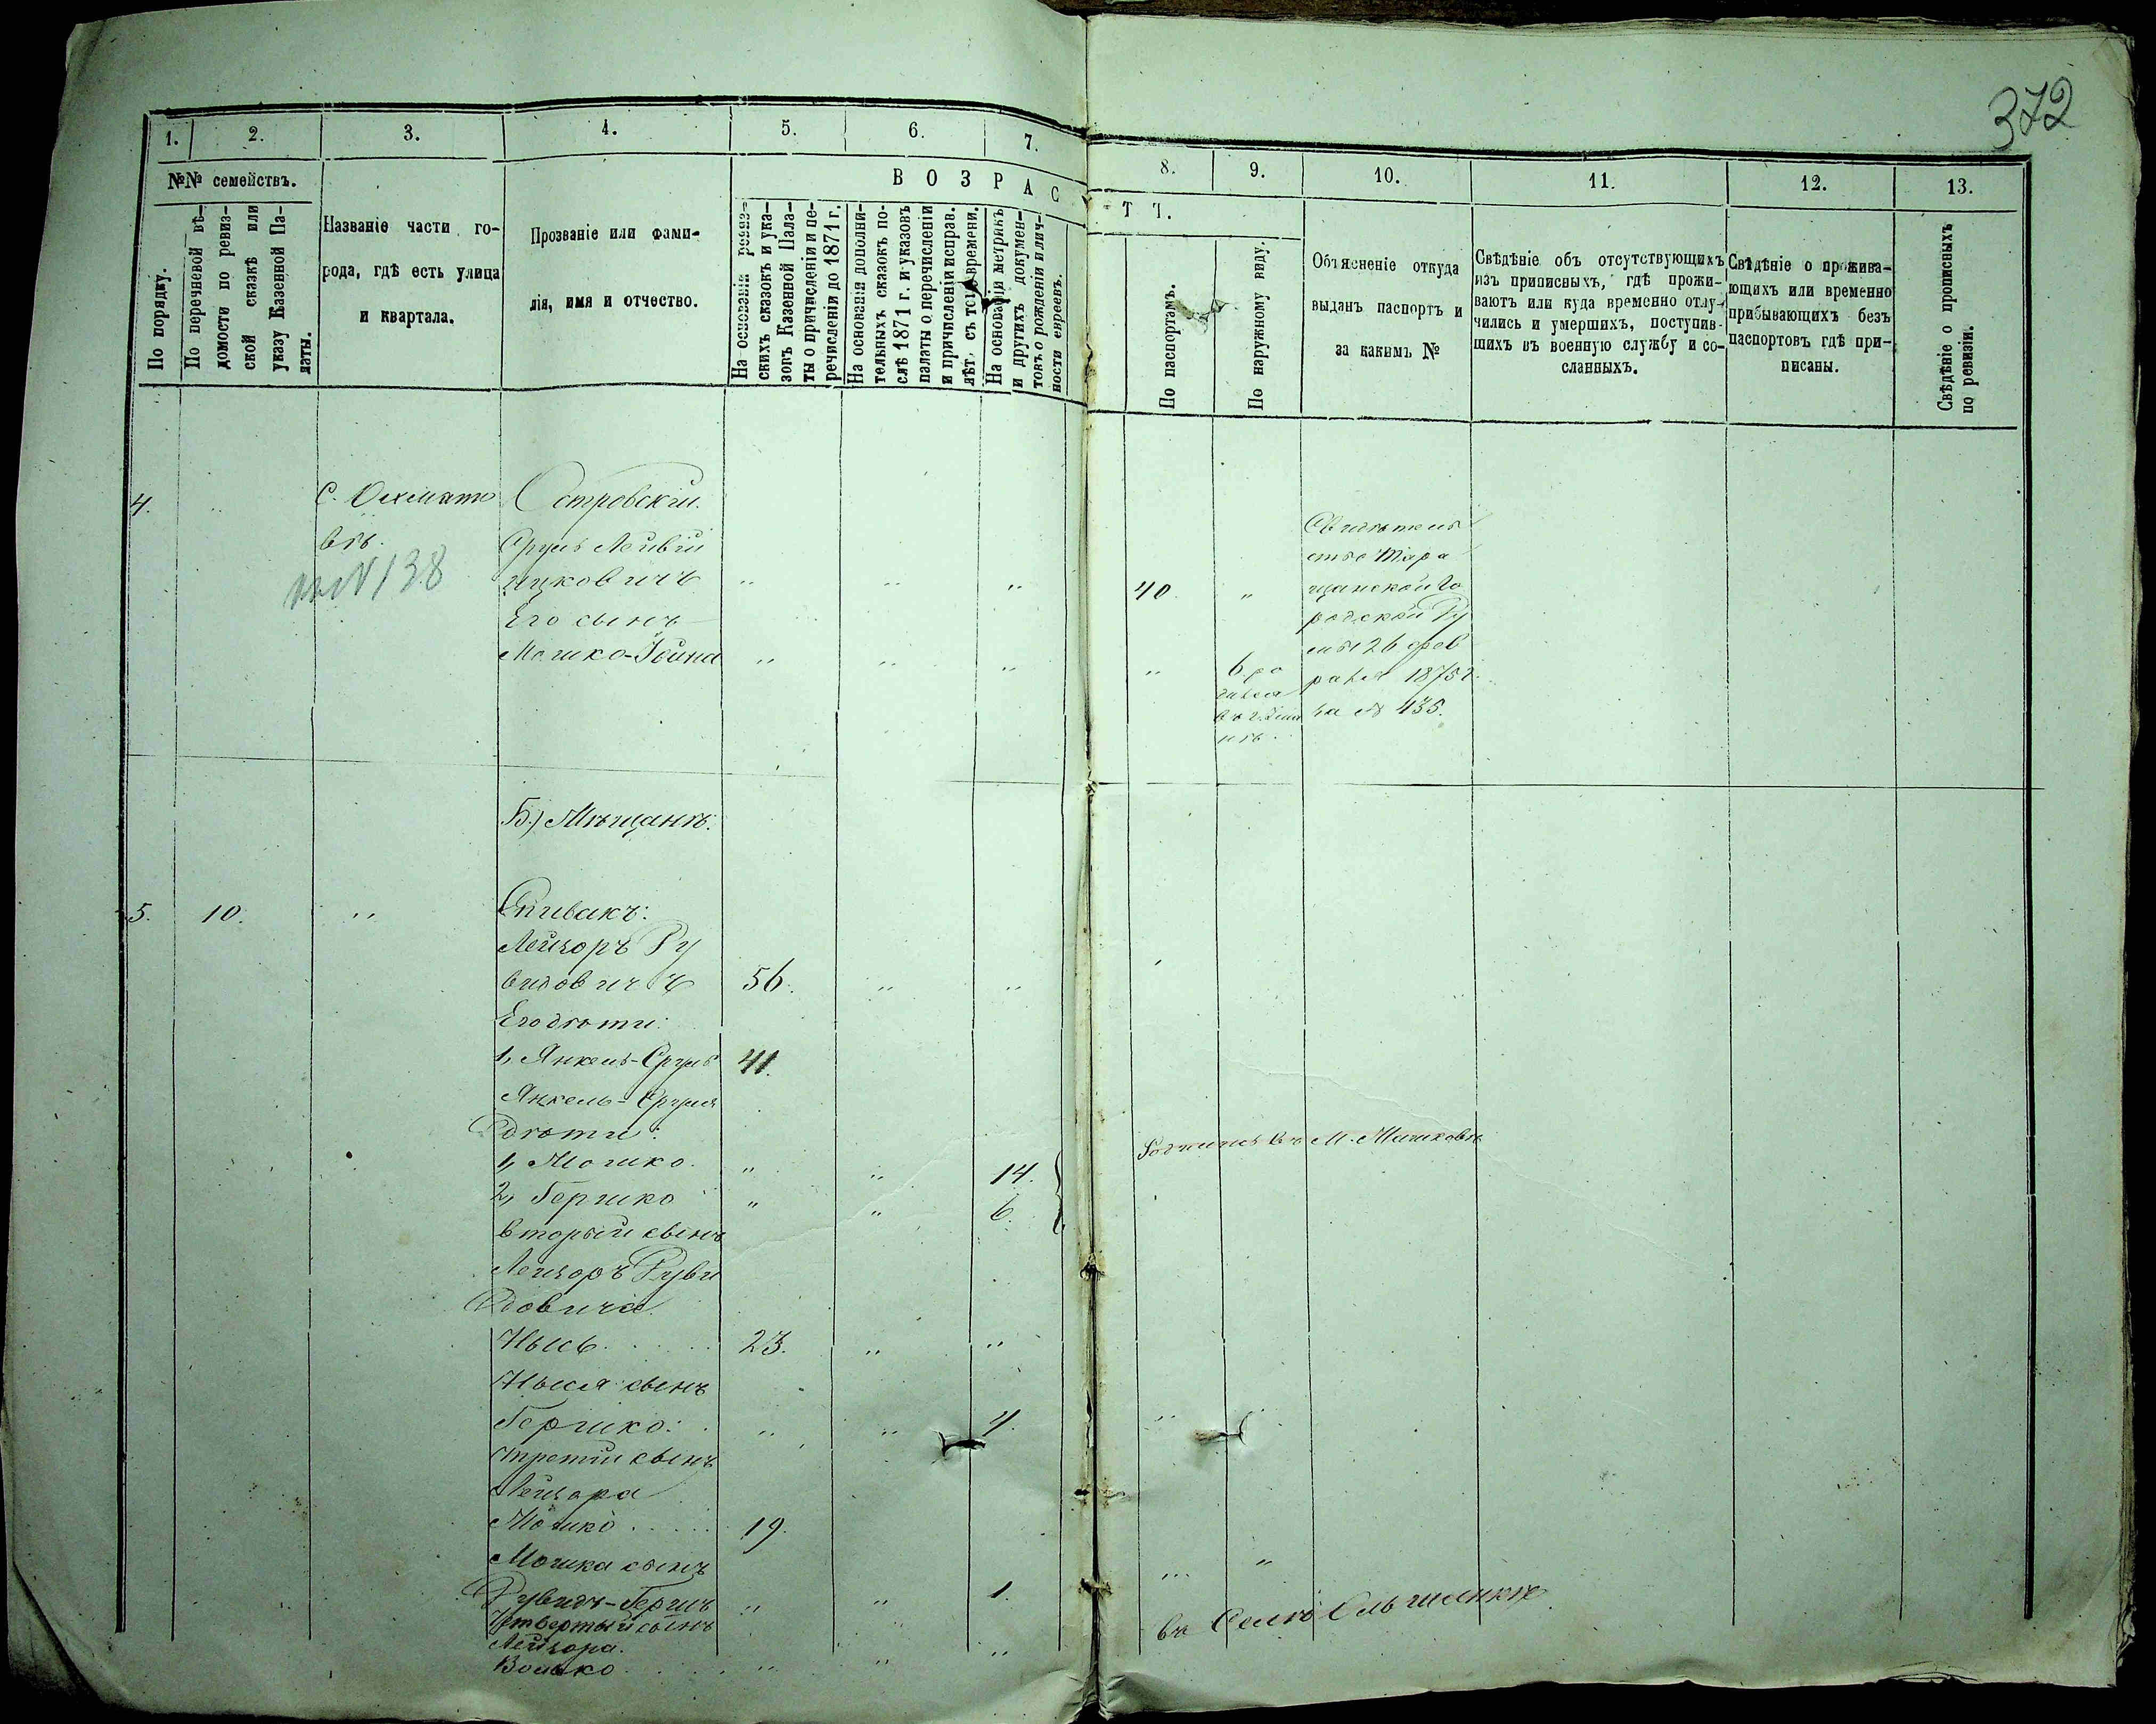 372
1.
2.
3.
4.
5.
6.
7.
8.
9.
10.
11.
12.
13.
№№ семействъ.
По порядку.
По перечневой вѣ-
домости по ревиз-
ской сказкѣ или
указу Казенной Па-
латы.
Названіе части го-
рода, гдѣ есть улица
и квартала.
Прозваніе или фами-
лія, имя и отчество.
ВОЗРАСТЪ.
На основаніи ревиз-
скихъ сказокъ и ука-
зовъ Казенной Пала-
ты о причисленіи и пе-
речисленіи до 1871 г.
На основаніи дополни-
тельныхъ сказокъ по-
слѣ 1871 г. и указовъ
палаты о перечисленіи
и причисленіи исправ.
лѣт. съ того времени.
На основаніи метрикъ
и другихъ докумен-
товъ о рожденіи и лич-
ности евреевъ.
По паспортамъ.
По наружному виду.
Объясненіе откуда
выданъ паспортъ и
за какимъ №
Свѣдѣніе объ отсутствующихъ
изъ приписныхъ, гдѣ прожи-
ваютъ или куда временно отлу-
чились и умершихъ, поступив-
шихъ въ военную службу и со-
сланныхъ.
Свѣдѣніе о прожива-
ющихъ или временно
прибывающихъ безъ
паспортовъ гдѣ при-
писаны.
Свѣдѣніе о прописныхъ
по ревизіи.
4.
С. Охмато
вѣ.
№ 138
Островскій.
Сруль Лейбій
Ицковичъ
Его сынъ
Мошко-Іойна
40
6 ро
дился
въ г.
Свидѣтель
ство Тара
щанской Го
родской Ду
мы 26 фев
раля 1875 г.
за № 435.
Б.) Мѣщанѣ.
5.
10.
Спивакъ:
Лейзоръ Ру
видовичъ 56.
Его дѣти:
1, Янкель-Сруль 41.
Янкель-Сруля
дѣти:
1, Мошко. 14.
2, Гершко 6.
Родились въ М. Машковѣ
вторый сынъ
Лейзоръ Руви
довича
Нысь 23.
Ныся сынъ
Гершко: 4.
третій сынъ
Лейзора
Мошко 19.
Мошка сынъ
Рувидъ-Гершъ 1.
въ Селѣ Ольшанкѣ
Четвертый сынъ
Лейзора.
Волько